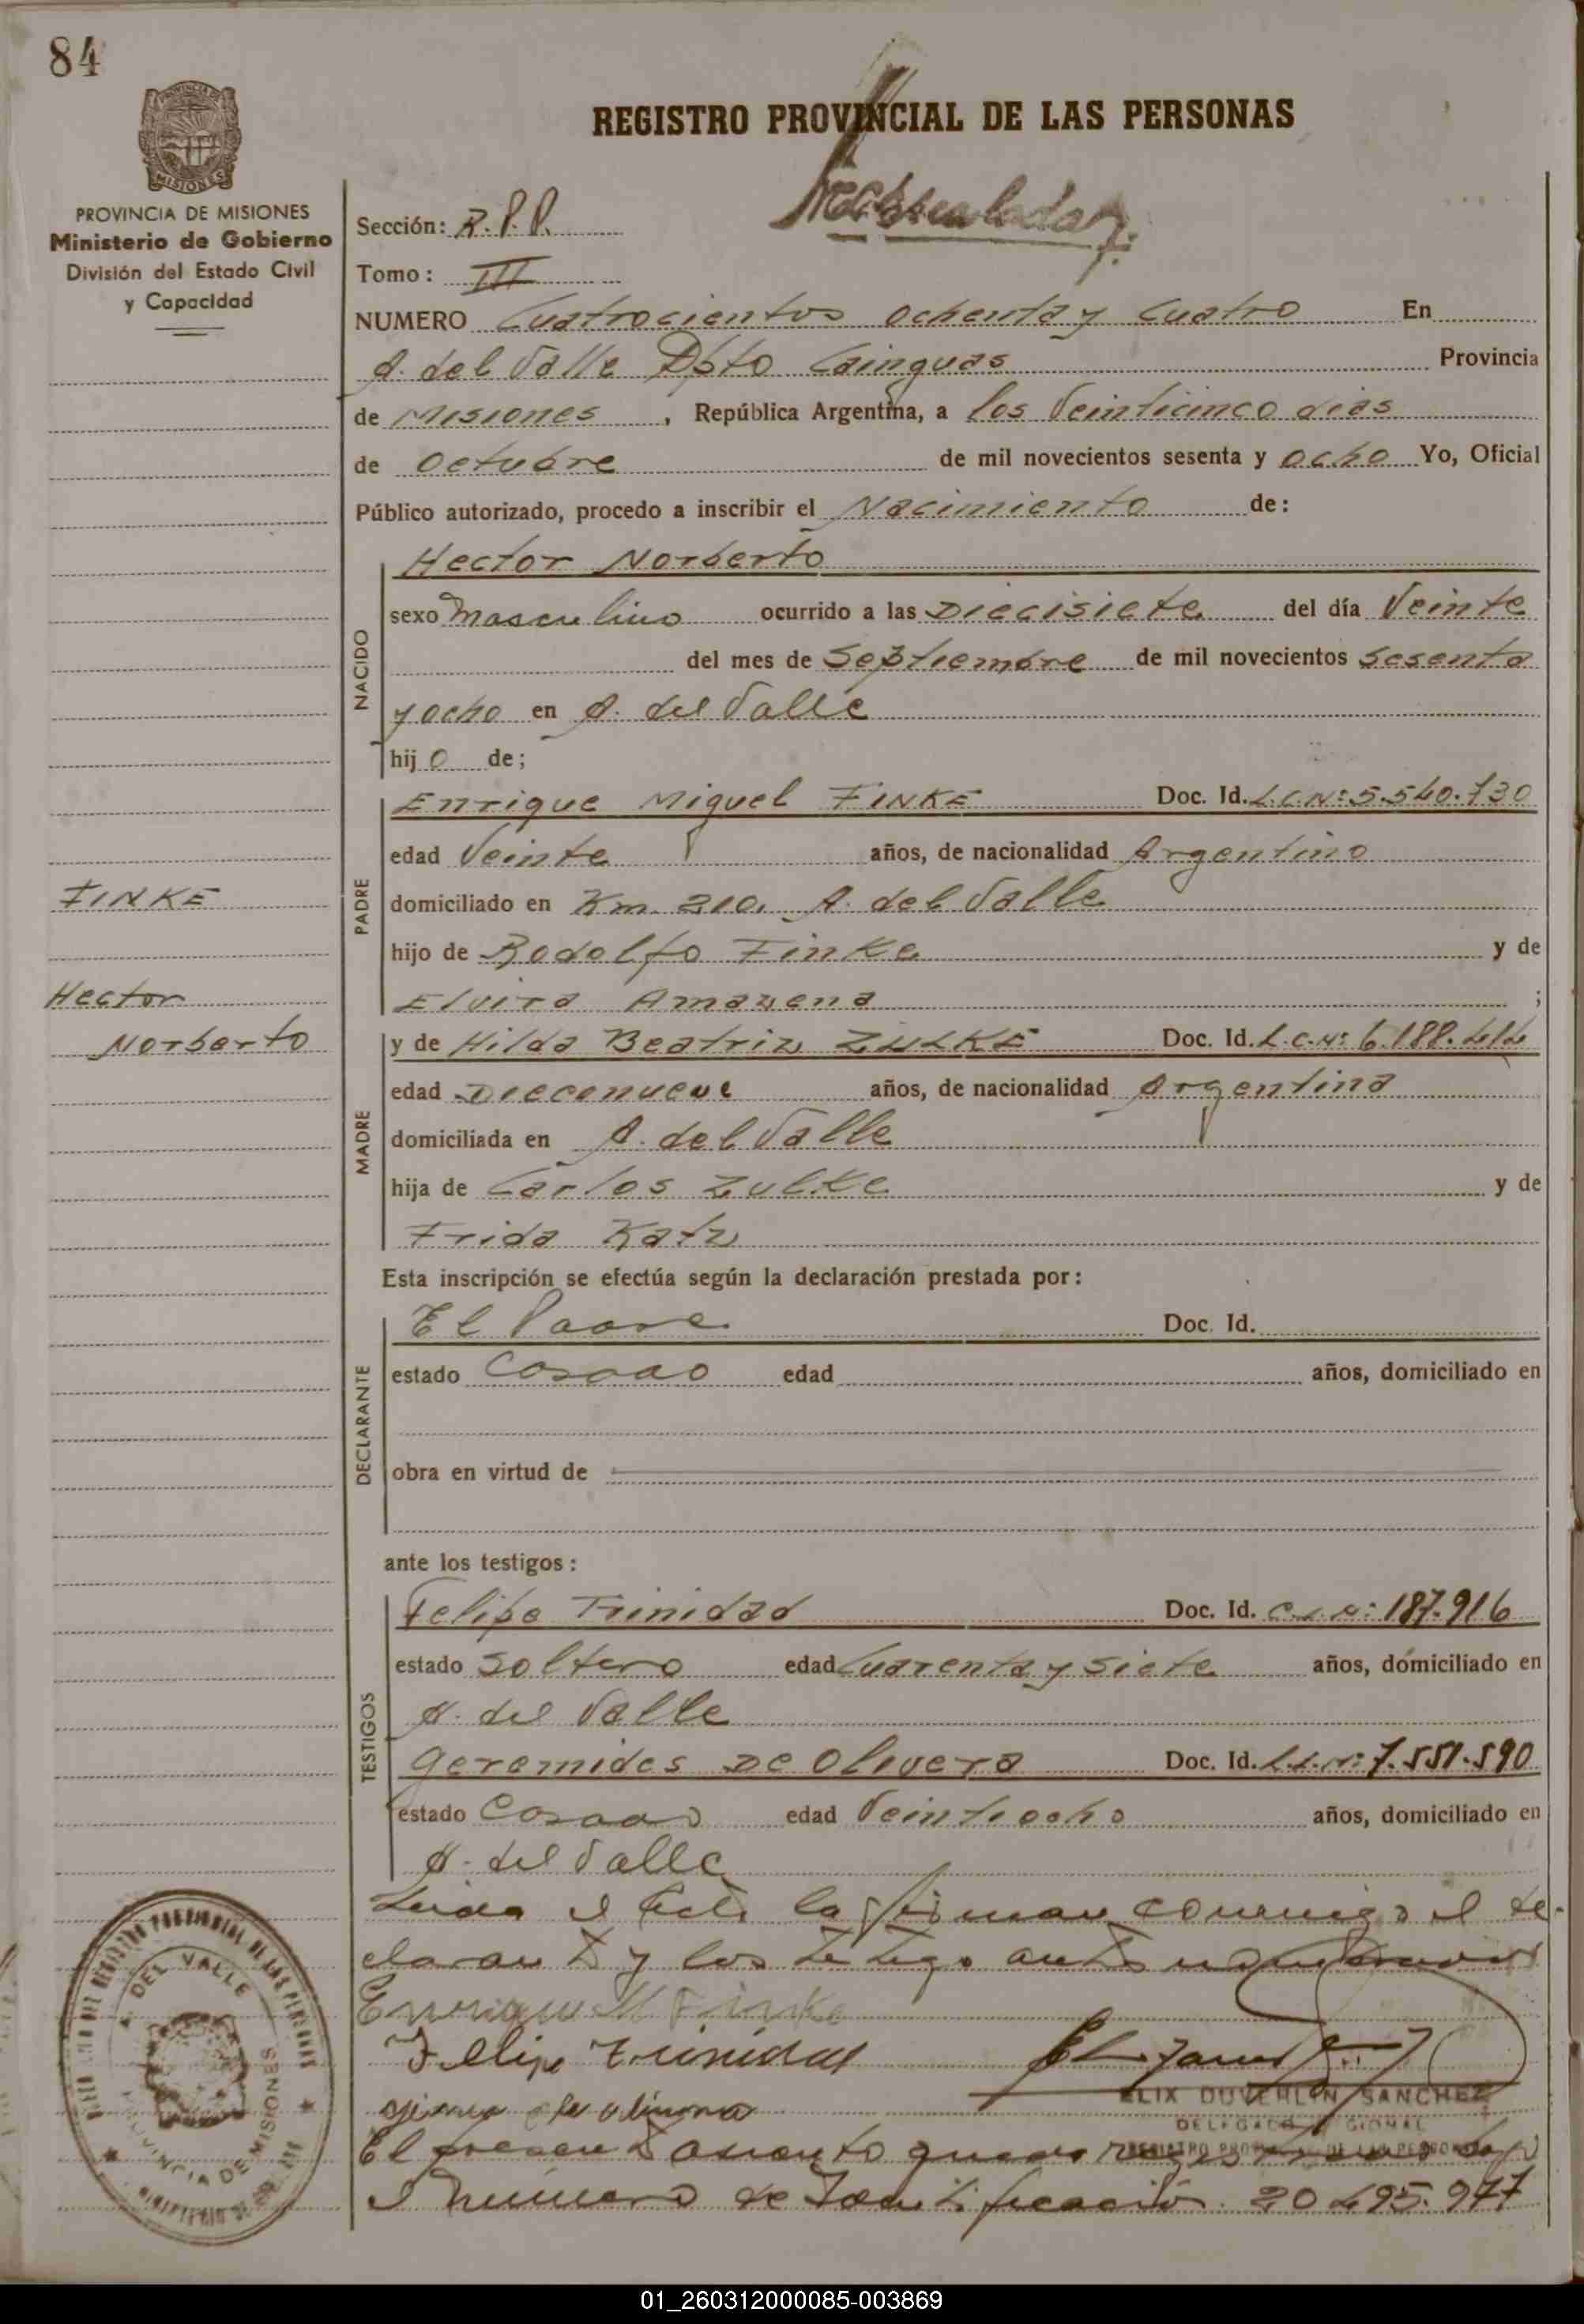 84
PROVINCIA DE MISIONES
Ministerio de Gobierno
División del Estado Civil
y Capacidad
REGISTRO PROVINCIAL DE LAS PERSONAS
Sección: R.P.P.
Tomo: III
NUMERO Cuatrocientos ochenta y Cuatro En
A. del Valle Dpto Cainguas Provincia
de Misiones, República Argentina, a los Veinticinco dias
de Octubre de mil novecientos sesenta y ocho Yo, Oficial
Público autorizado, procedo a inscribir el Nacimiento de:
NACIDO
Hector Norberto
sexo masculino ocurrido a las Diecisiete del día Veinte
del mes de Septiembre de mil novecientos sesenta
y ocho en A. del Valle
hijo de;
PADRE
Enrique Miguel FINKE Doc. Id. L.E.Nº: 5.540.730
edad Veinte años, de nacionalidad Argentino
domiciliado en Km. 210. A. del Valle
hijo de Rodolfo Finke y de
Elvira Amarena;
FINKE
Hector
Norberto
MADRE
y de Hilda Beatriz ZULKE Doc. Id. L.C.Nº 6.188.414
edad Diecenueve años, de nacionalidad Argentina
domiciliada en A. del Valle
hija de Carlos Zulke y de
Frida Katz
Esta inscripción se efectúa según la declaración prestada por:
DECLARANTE
El Padre Doc. Id.
estado Casado edad años, domiciliado en
obra en virtud de
ante los testigos:
TESTIGOS
Felipe Trinidad Doc. Id. C.I.Nº: 187.916
estado Soltero edad Cuarenta y siete años, domiciliado en
A. del Valle
Geremides De Olivera Doc. Id. L.E.Nº: 7.551.590
estado Casado edad Veintiocho años, domiciliado en
A. del Valle
Leida el Acta la firman conmigo el de-
clarante y los testigo antes
Enrique M Finke
Felipe Trinidad
ELIX DUVERLIN SANCHEZ
El presente asiento queda registrado bajo
el número de Identificación 20.495.977
A. DEL VALLE
PROVINCIA DE MISIONES
01_260312000085-003869